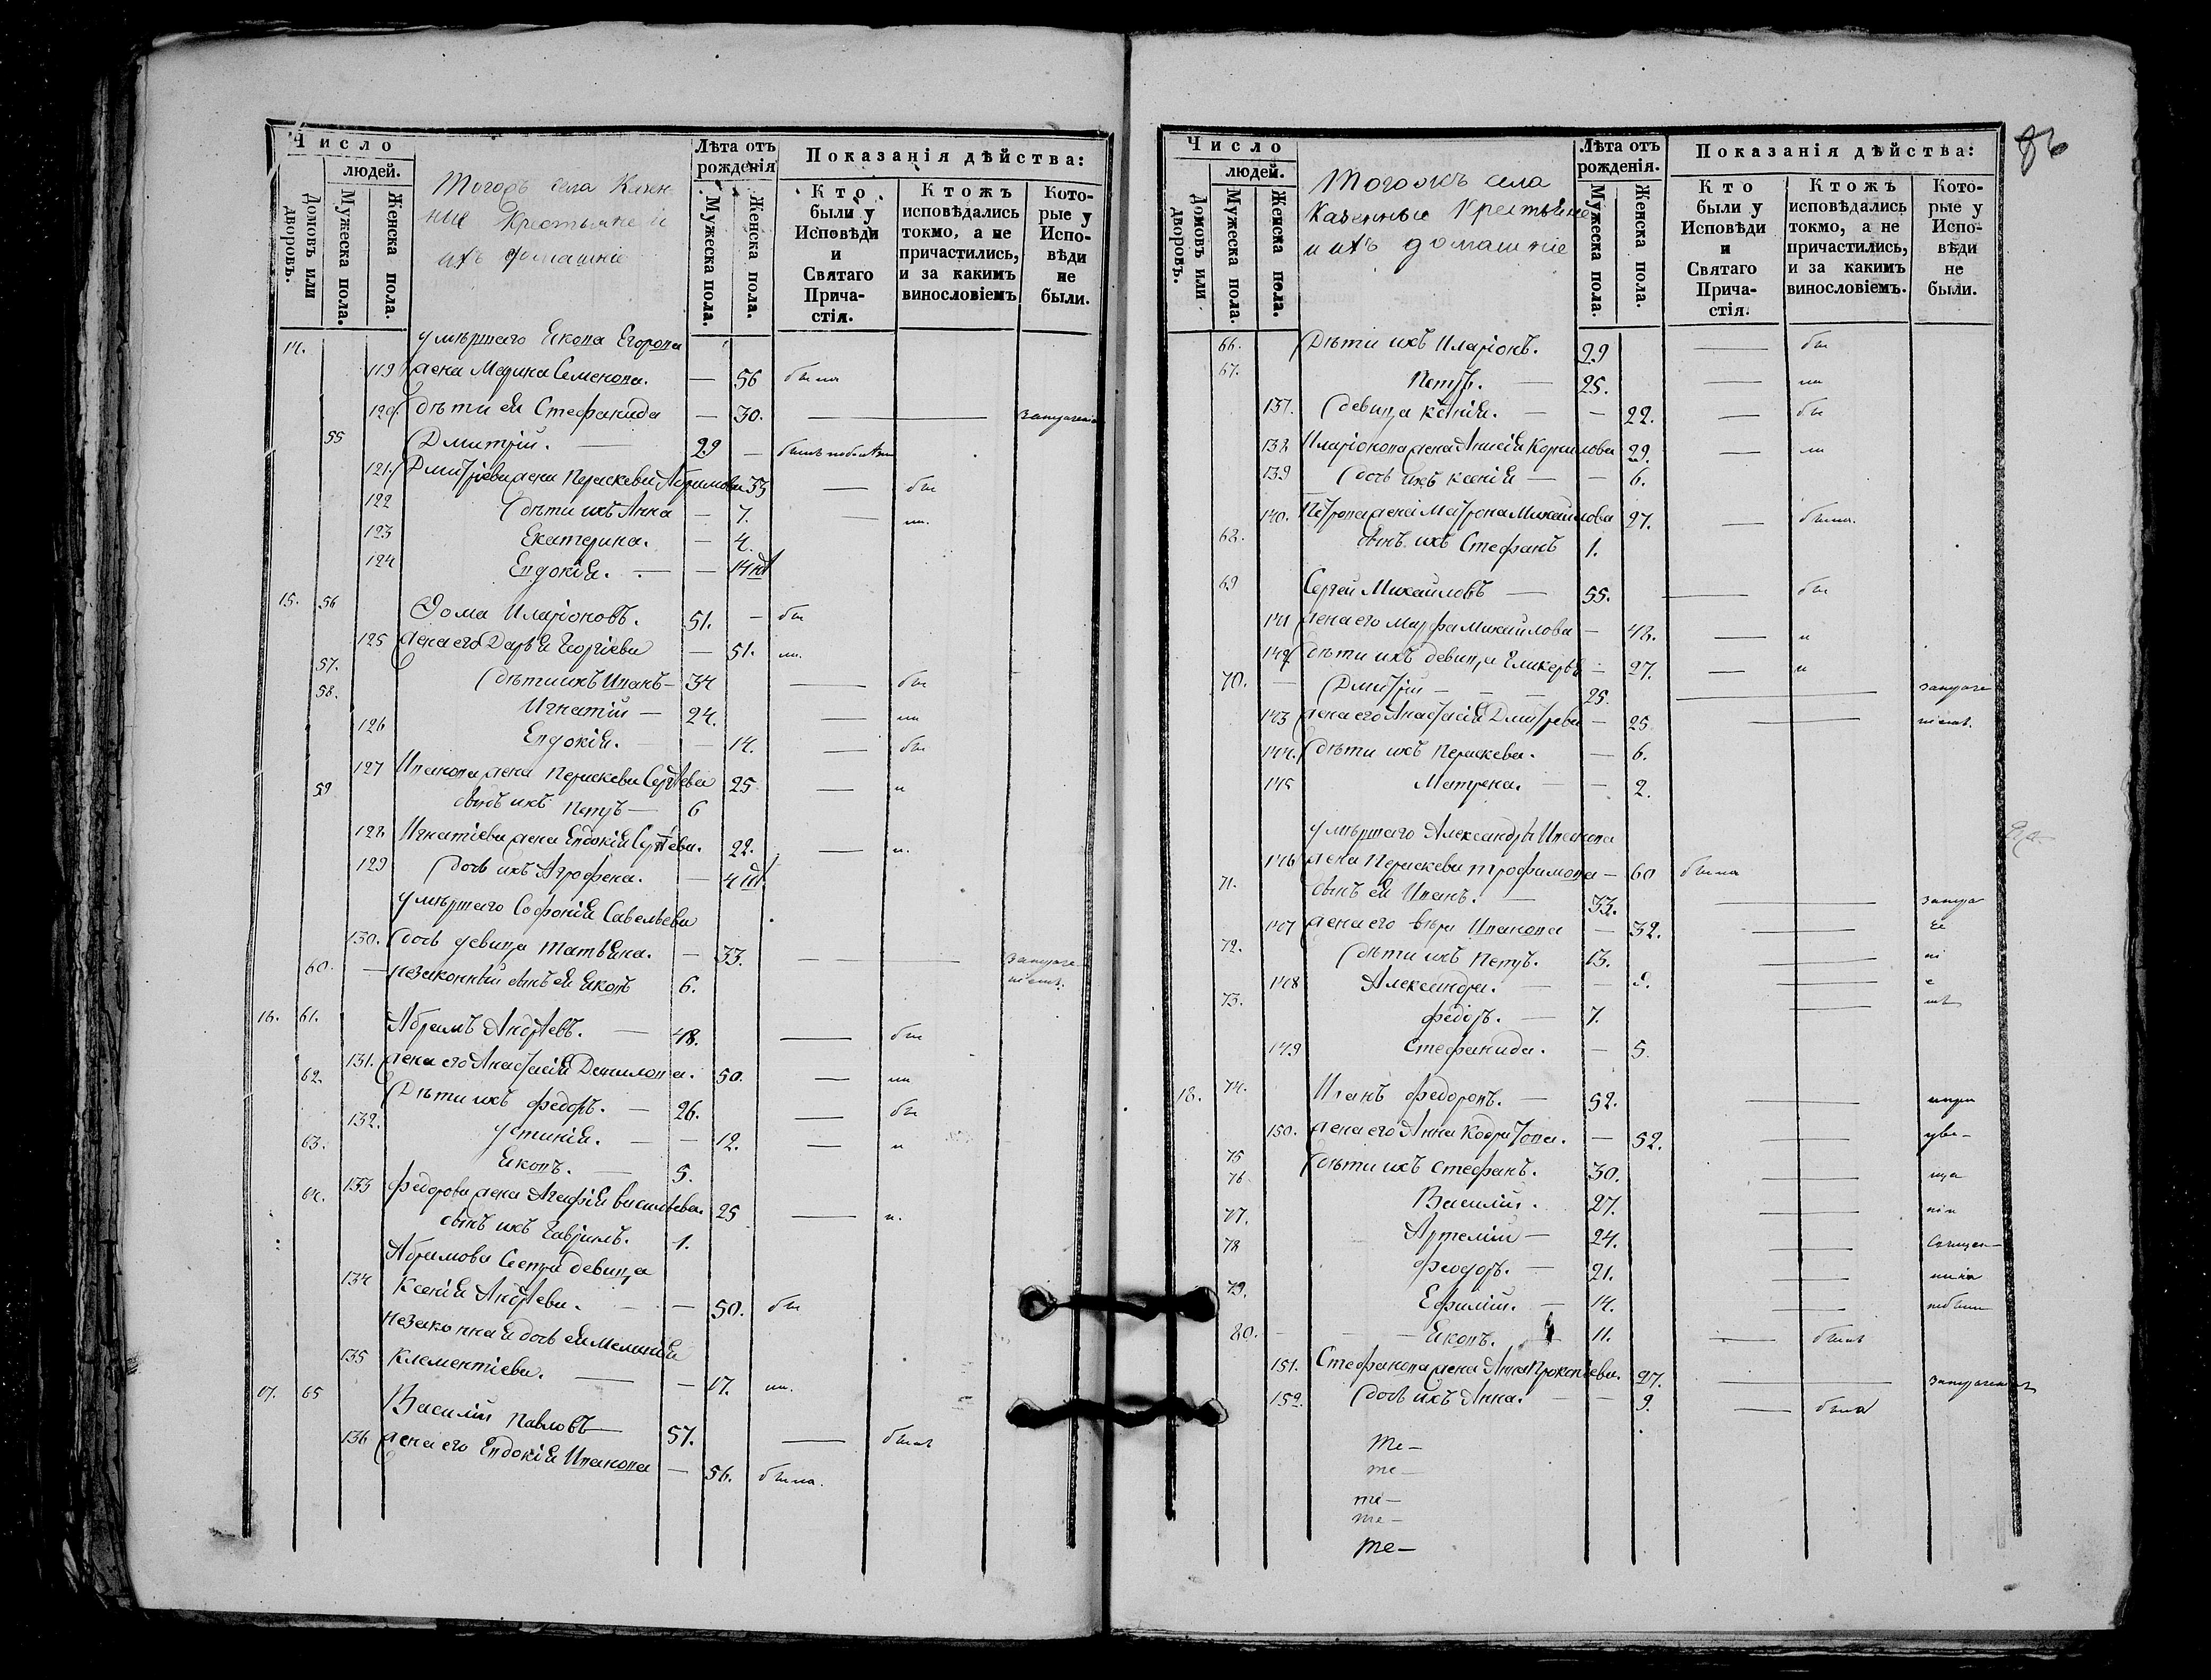 Число
людей.
Домовъ или дворовъ.
Мужеска пола.
Женска пола.
Тогожъ села Казен-
ные Крестьяне и
ихъ домашніе
Лѣта отъ рожденія
Мужеска пола.
Женска пола.
Показанія дѣйства:
Кто были у Исповѣди и Святаго Прича-стія.
Ктожъ исповѣдались токмо, а не причастились, и за какимъ винословіемъ.
Кото-рые у Испо-вѣди не были.
14. умѣршаго Якова Егорова
119 жена Марина Семенова. — 56 была
120. дѣти ея Стефанида — 30.
55 Дмитрій. — 29 —
121. Дмитріева жена Параскева Абрамова 33 — бы
122 дѣти ихъ Анна — 7. — ла.
123 Екатерина. — 4.
124 Евдокія. — — 1/4
15. 56 Фома Иларіоновъ. 51. — бы
125 жена его Дарья Георгіева — 51. ла.
57. дѣти ихъ Иванъ — 34 — бы
58. Игнатій — 24. — ли
126 Евдокія. — 14. — бы
127 Иванова жена Параскева Сергѣева 25 — л
59 сынъ ихъ Петръ — 6
128 Игнатіева жена Евдокія Сергѣева. 22. — л.
129 дочь ихъ Агрофена. — 4
умѣршаго Софонія Савельева
130. дочь девица Татьяна. — 33. — —
60. — незаконный сынъ ея Яковъ 6.
16. 61. Абрамъ Андрѣевъ. — 48. — бы
131. жена его Анастасія Данилова. 50. — ли
62. Дѣти ихъ Федоръ. — 26. — бы
132. Устинія. — — 12. — л
63. Яковъ. — 5.
133 Федорова жена Агафія Васильева. 25 — л.
64. сынъ ихъ Гавріилъ. 1.
Абрамова Сестра девица
134 Ксенія Андрѣева. — — 50. бы
незаконная дочь ея Меланія
135 Клементіева. — — 17. ла.
17. 65 Василій Павловъ — 57. — былъ
136 жена его Евдокія Иванова — 56. была.
86
Число
людей.
Домовъ или дворовъ.
Мужеска пола.
Женска пола.
Тогожъ села
Казенные Крестьяне
и ихъ домашніе
Лѣта отъ рожденія.
Мужеска пола.
Женска пола.
Показанія дѣйства:
Кто были у Исповѣди и Святаго Прича-стія.
Ктожъ исповѣдались токмо, а не причастились, и за какимъ винословіемъ.
Кото-рые у Испо-вѣди не были.
66. Дѣти ихъ Иларіонъ. 29 — бы
67. Петръ. — 25. — ли
137. девица Ксенія. — — 22. — бы
138 Иларіонова жена Анисія Корнилова 29. — ли
139 дочь ихъ Ксенія — — 6.
140. Петрова жена Матрона Михайлова 27. — была.
68. сынъ ихъ Стефанъ 1.
69 Сергей Михайловъ — 55. — бы
141 жена его Марфа Михайлова — 48. — л
142 дѣти ихъ девица Гликерья — 27. — и
70. — Дмитрій — — — 25. —
143 жена его Анастасія Дмитрева — 25 —
144. дѣти ихъ Параскева. — 6.
145 Матрена. — — 2.
умѣршаго Александра Иванова
146 жена Параскева Трофимова — 60 была
71. сынъ ея Иванъ. — 33. —
147 жена его Вѣра Иванова — 32. —
72. Дѣти ихъ Петръ. 13. —
148 Александра. — — 9. —
73. Федоръ. — 7. —
149 Стефанида. — 5.
18. 74. Иванъ Федоровъ. — 52. —
150. жена его Анна Кодратова. — 52. —
75 дѣти ихъ Стефанъ. 30. —
76 Василій. — 27. —
77. Артемій — 24. —
78 Феодоръ. — 21. —
79. Ефимій. — 14. —
80. — — — Яковъ. 11. — былъ
151. Стефанова жена Анна Прокопіева. 27. —
152. дочь ихъ Анна. — — 9. — была
те —
те —
те —
те —
те —